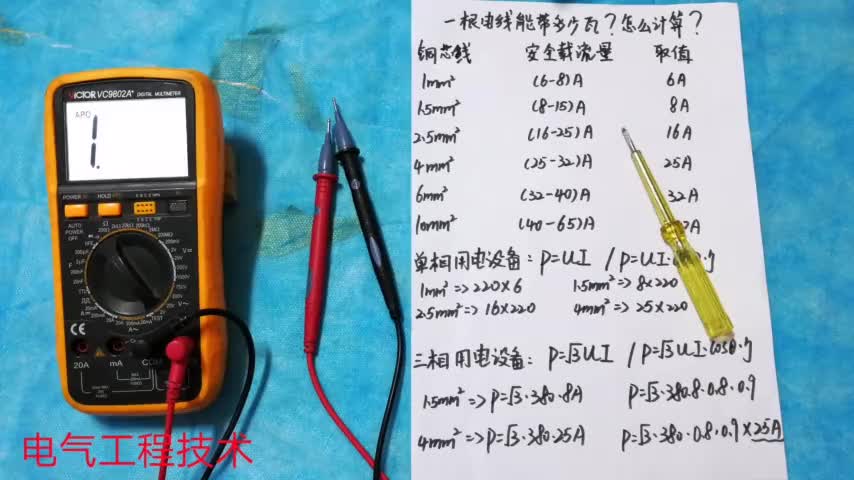 VICTOR VC9802A+ DIGITAL MULTIMETER
APO
1.
POWER HOLD
AUTO POWER OFF
CE
20A mA COM
电气工程技术
一根电线能带多少瓦？怎么计算？
铜芯线 安全载流量 取值
1mm² (6-8)A 6A
1.5mm² (8-15)A 8A
2.5mm² (16-25)A 16A
4mm² (25-32)A 25A
6mm² (32-40)A 32A
10mm² (40-65)A
单相用电设备: P=UI / P=UI
1mm² => 220×6 1.5mm² => 8×220
2.5mm² => 16×220 4mm² => 25×220
三相用电设备: P=√3UI / P=√3UI·cosθ·η
1.5mm² => P=√3·380·8A P=√3·380.8·0.8·0.9
4mm² => P=√3·380·25A P=√3·380·0.8·0.9×25A